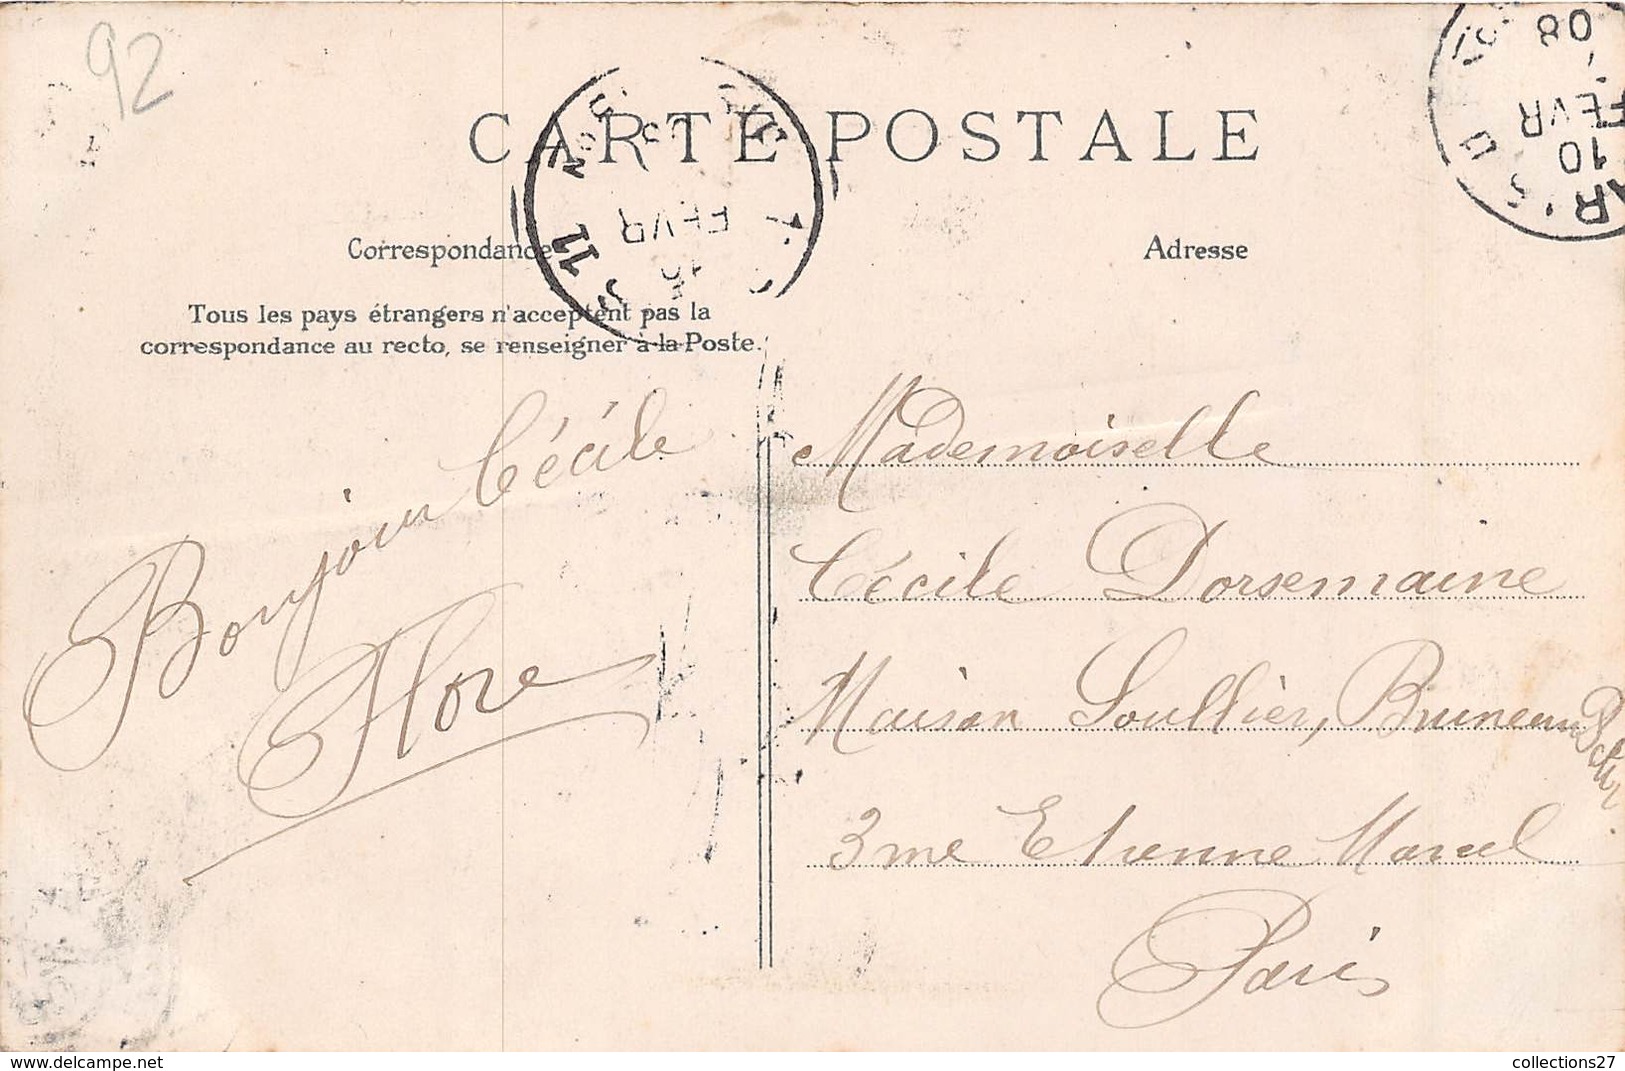 92
CARTE POSTALE
Correspondance
Tous les pays étrangers n'acceptent pas la
correspondance au recto, se renseigner à la Poste.
Bonjour Cécile
Flore
Adresse
Mademoiselle
Cécile Dorsemaine
Maison Soullier, Bruneau
3 me Etienne Marcel
Paris
10
FEVR
08
11
FEVR
collections27